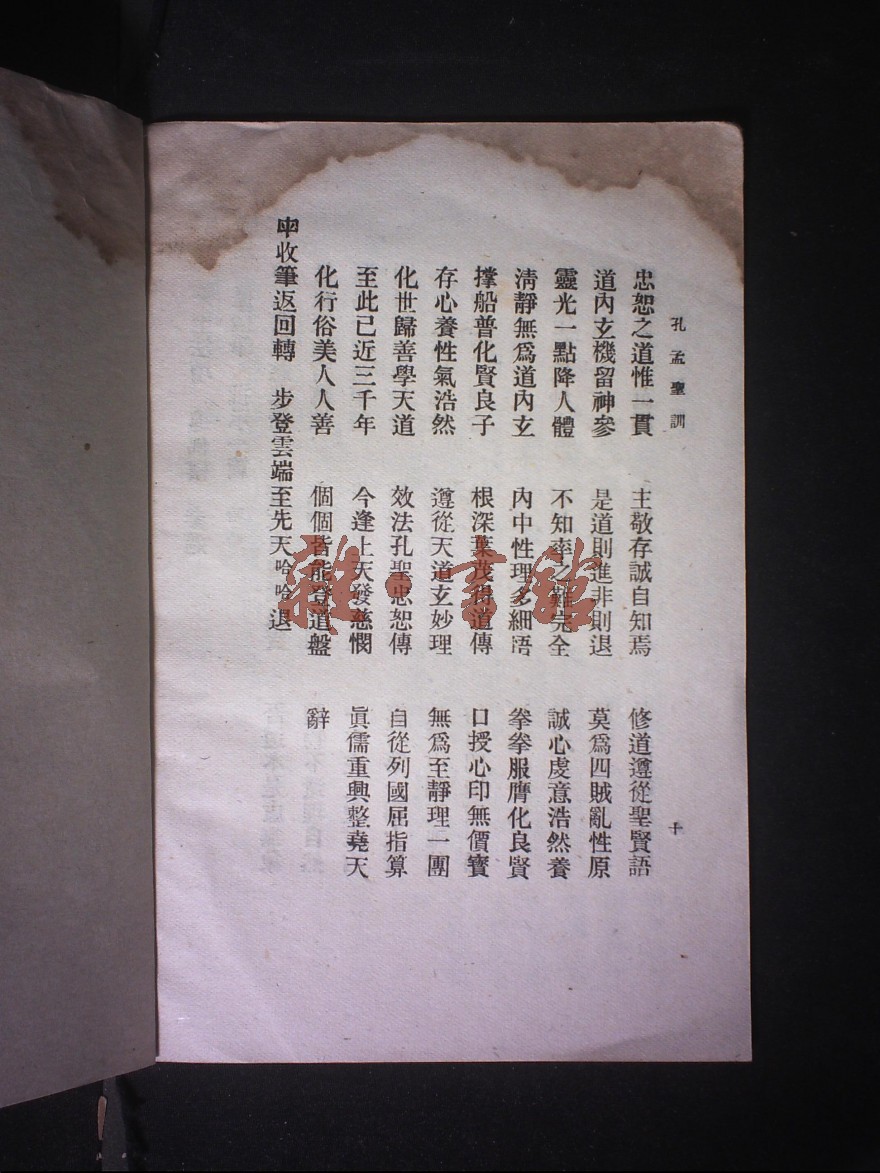 孔孟聖訓
十
忠恕之道惟一貫　主敬存誠自知焉　修道遵從聖賢語
道內玄機留神參　是道則進非則退　莫為四賊亂性原
靈光一點降人體　不知率之難完全　誠心虔意浩然養
淸靜無為道內玄　內中性理多細語　拳拳服膺化良賢
撑船普化賢良子　根深葉茂得道傳　口授心印無價寶
存心養性氣浩然　遵從天道玄妙理　無為至靜理一團
化世歸善學天道　效法孔聖忠恕傳　自從列國屈指算
至此已近三千年　今逢上天發慈憫　眞儒重興整堯天
化行俗美人人善　個個皆能登道盤　辭
收筆返回轉　步登雲端至先天哈哈退
雜·書館